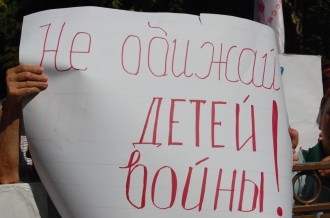 Не обижай
ДЕТЕЙ
ВОЙНЫ!